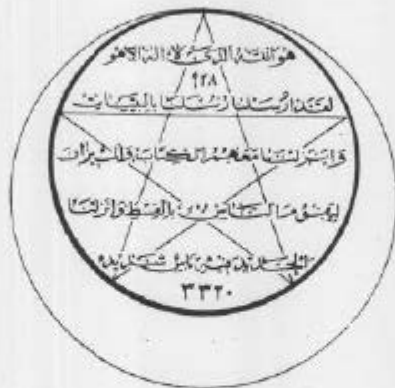 هو الله الذي لا اله الا هو
٩٢٨
لقد ارسلنا رسلنا بالبينات
وانزلنا معهم الكتاب والميزان
ليقوم الناس بالقسط وانزلنا
الحديد فيه باس شديد
٣٣٢٠